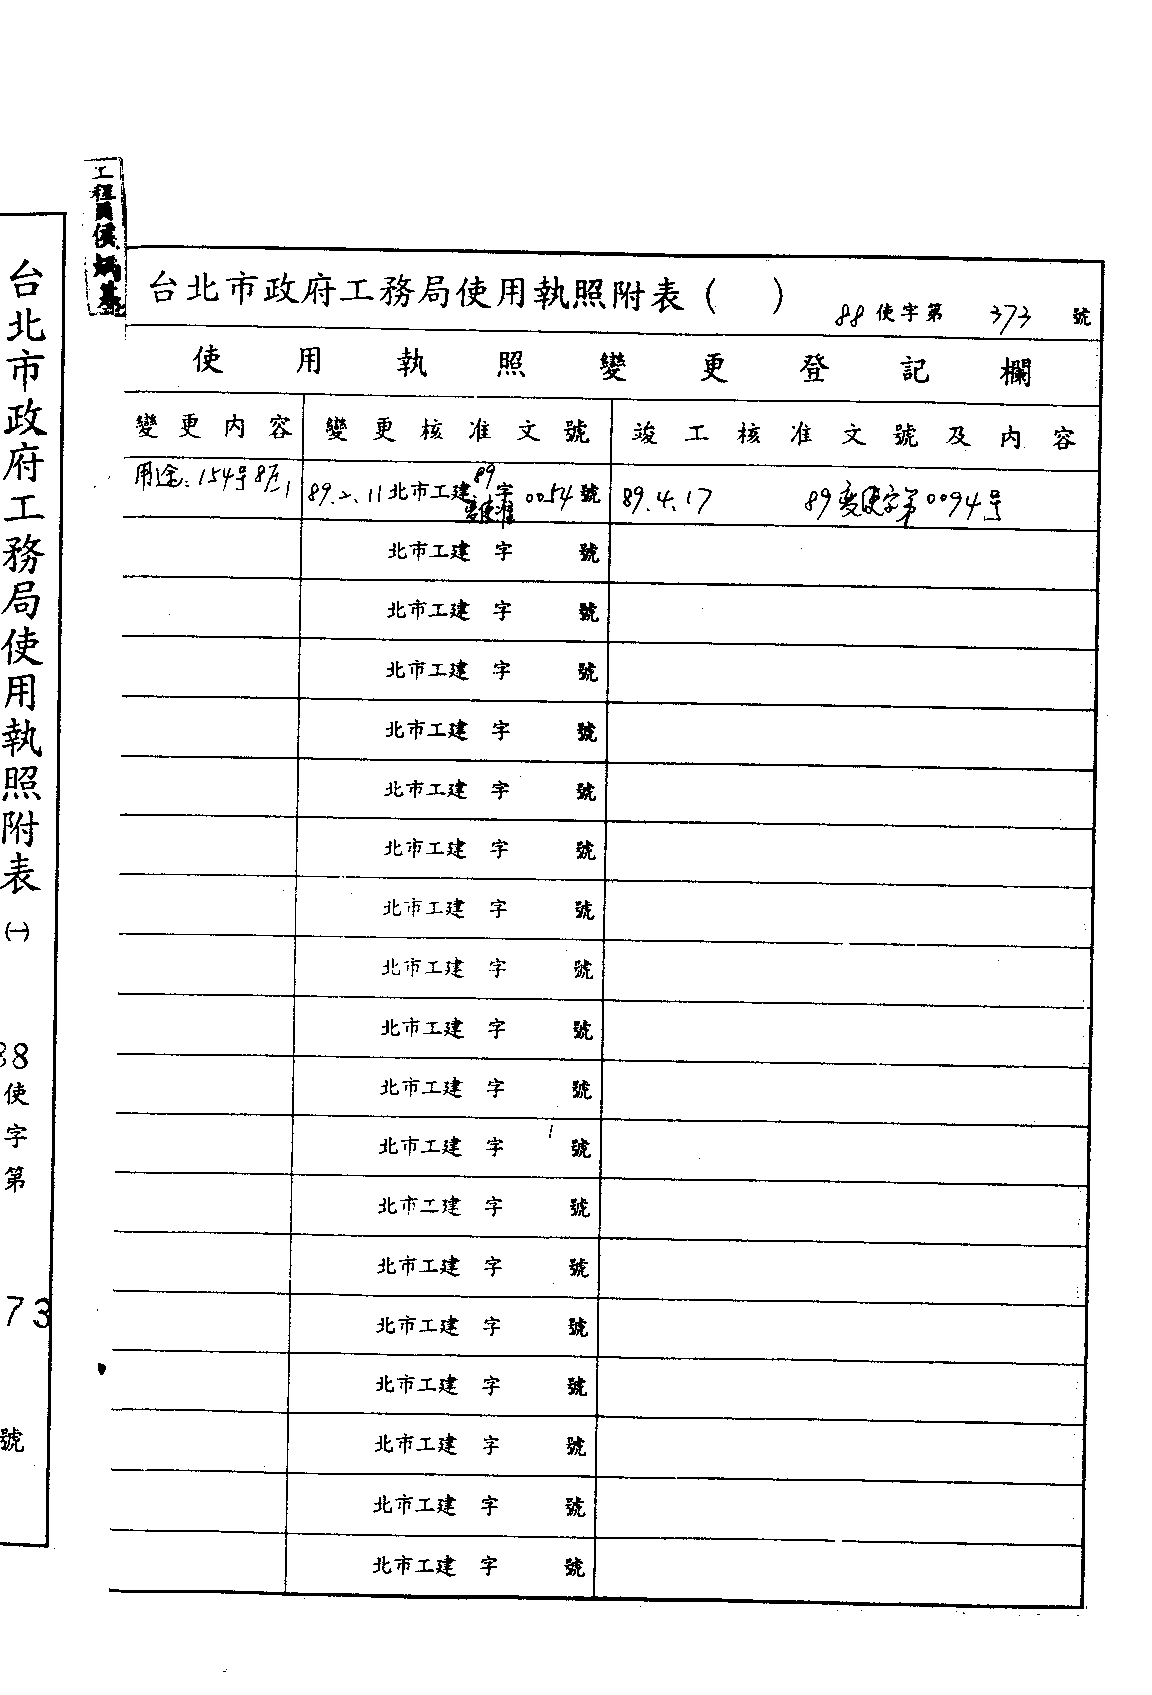 工程員侯
台北市政府工務局使用執照附表( )
88使字第 373 號
使用執照變更登記欄
變更內容 變更核准文號 竣工核准文號及內容
用途:154号8F-1 89.2.11北市工建89字變使准0054號 89.4.17 89變使字第0094号
北市工建 字 號
北市工建 字 號
北市工建 字 號
北市工建 字 號
北市工建 字 號
北市工建 字 號
北市工建 字 號
北市工建 字 號
北市工建 字 號
北市工建 字 號
北市工建 字 號
北市工建 字 號
北市工建 字 號
北市工建 字 號
北市工建 字 號
北市工建 字 號
北市工建 字 號
北市工建 字 號
台北市政府工務局使用執照附表(一)
88使字第 73 號